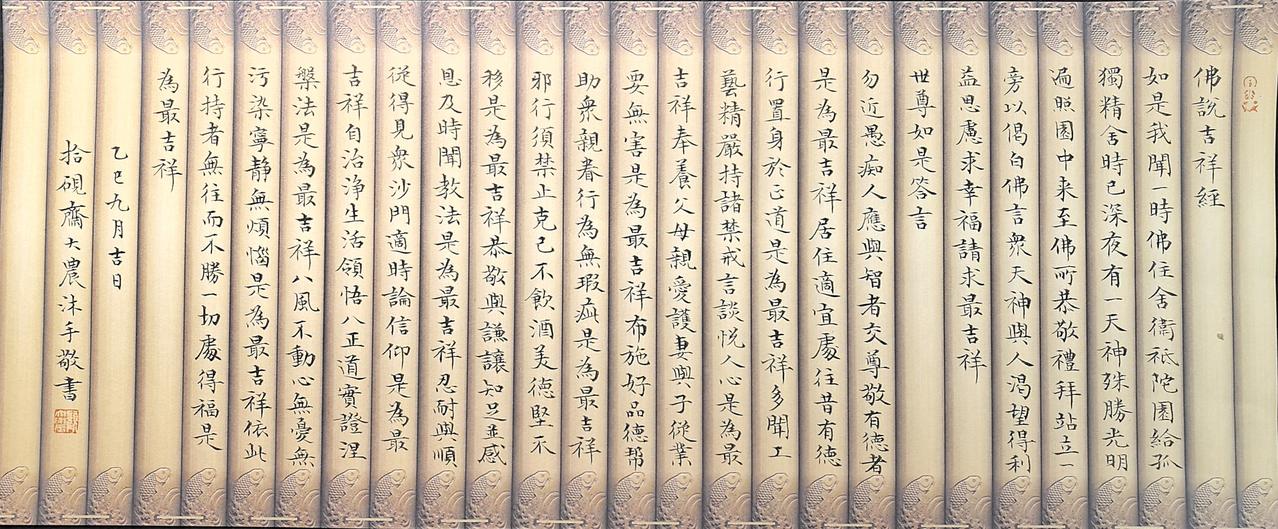 佛說吉祥經
如是我聞一時佛住舍衛祗陀園給孤
獨精舍時已深夜有一天神殊勝光明
遍照園中来至佛所恭敬禮拜站立一
旁以偈白佛言衆天神與人渴望得利
益思慮求幸福請求最吉祥
世尊如是答言
勿近愚痴人應與智者交尊敬有德者
是為最吉祥居住適宜處往昔有德
行置身於正道是為最吉祥多聞工
藝精嚴持諸禁戒言談悅人心是為最
吉祥奉養父母親愛護妻與子從業
要無害是為最吉祥布施好品德幫
助衆親眷行為無瑕疵是為最吉祥
邪行須禁止克己不飲酒美德堅不
移是為最吉祥恭敬與謙讓知足並感
恩及時聞教法是為最吉祥忍耐與順
從得見衆沙門適時論信仰是為最
吉祥自治淨生活領悟八正道實證涅
槃法是為最吉祥八風不動心無憂無
污染寧静無煩惱是為最吉祥依此
行持者無往而不勝一切處得福是
為最吉祥
乙巳九月吉日
拾硯齋大農沐手敬書